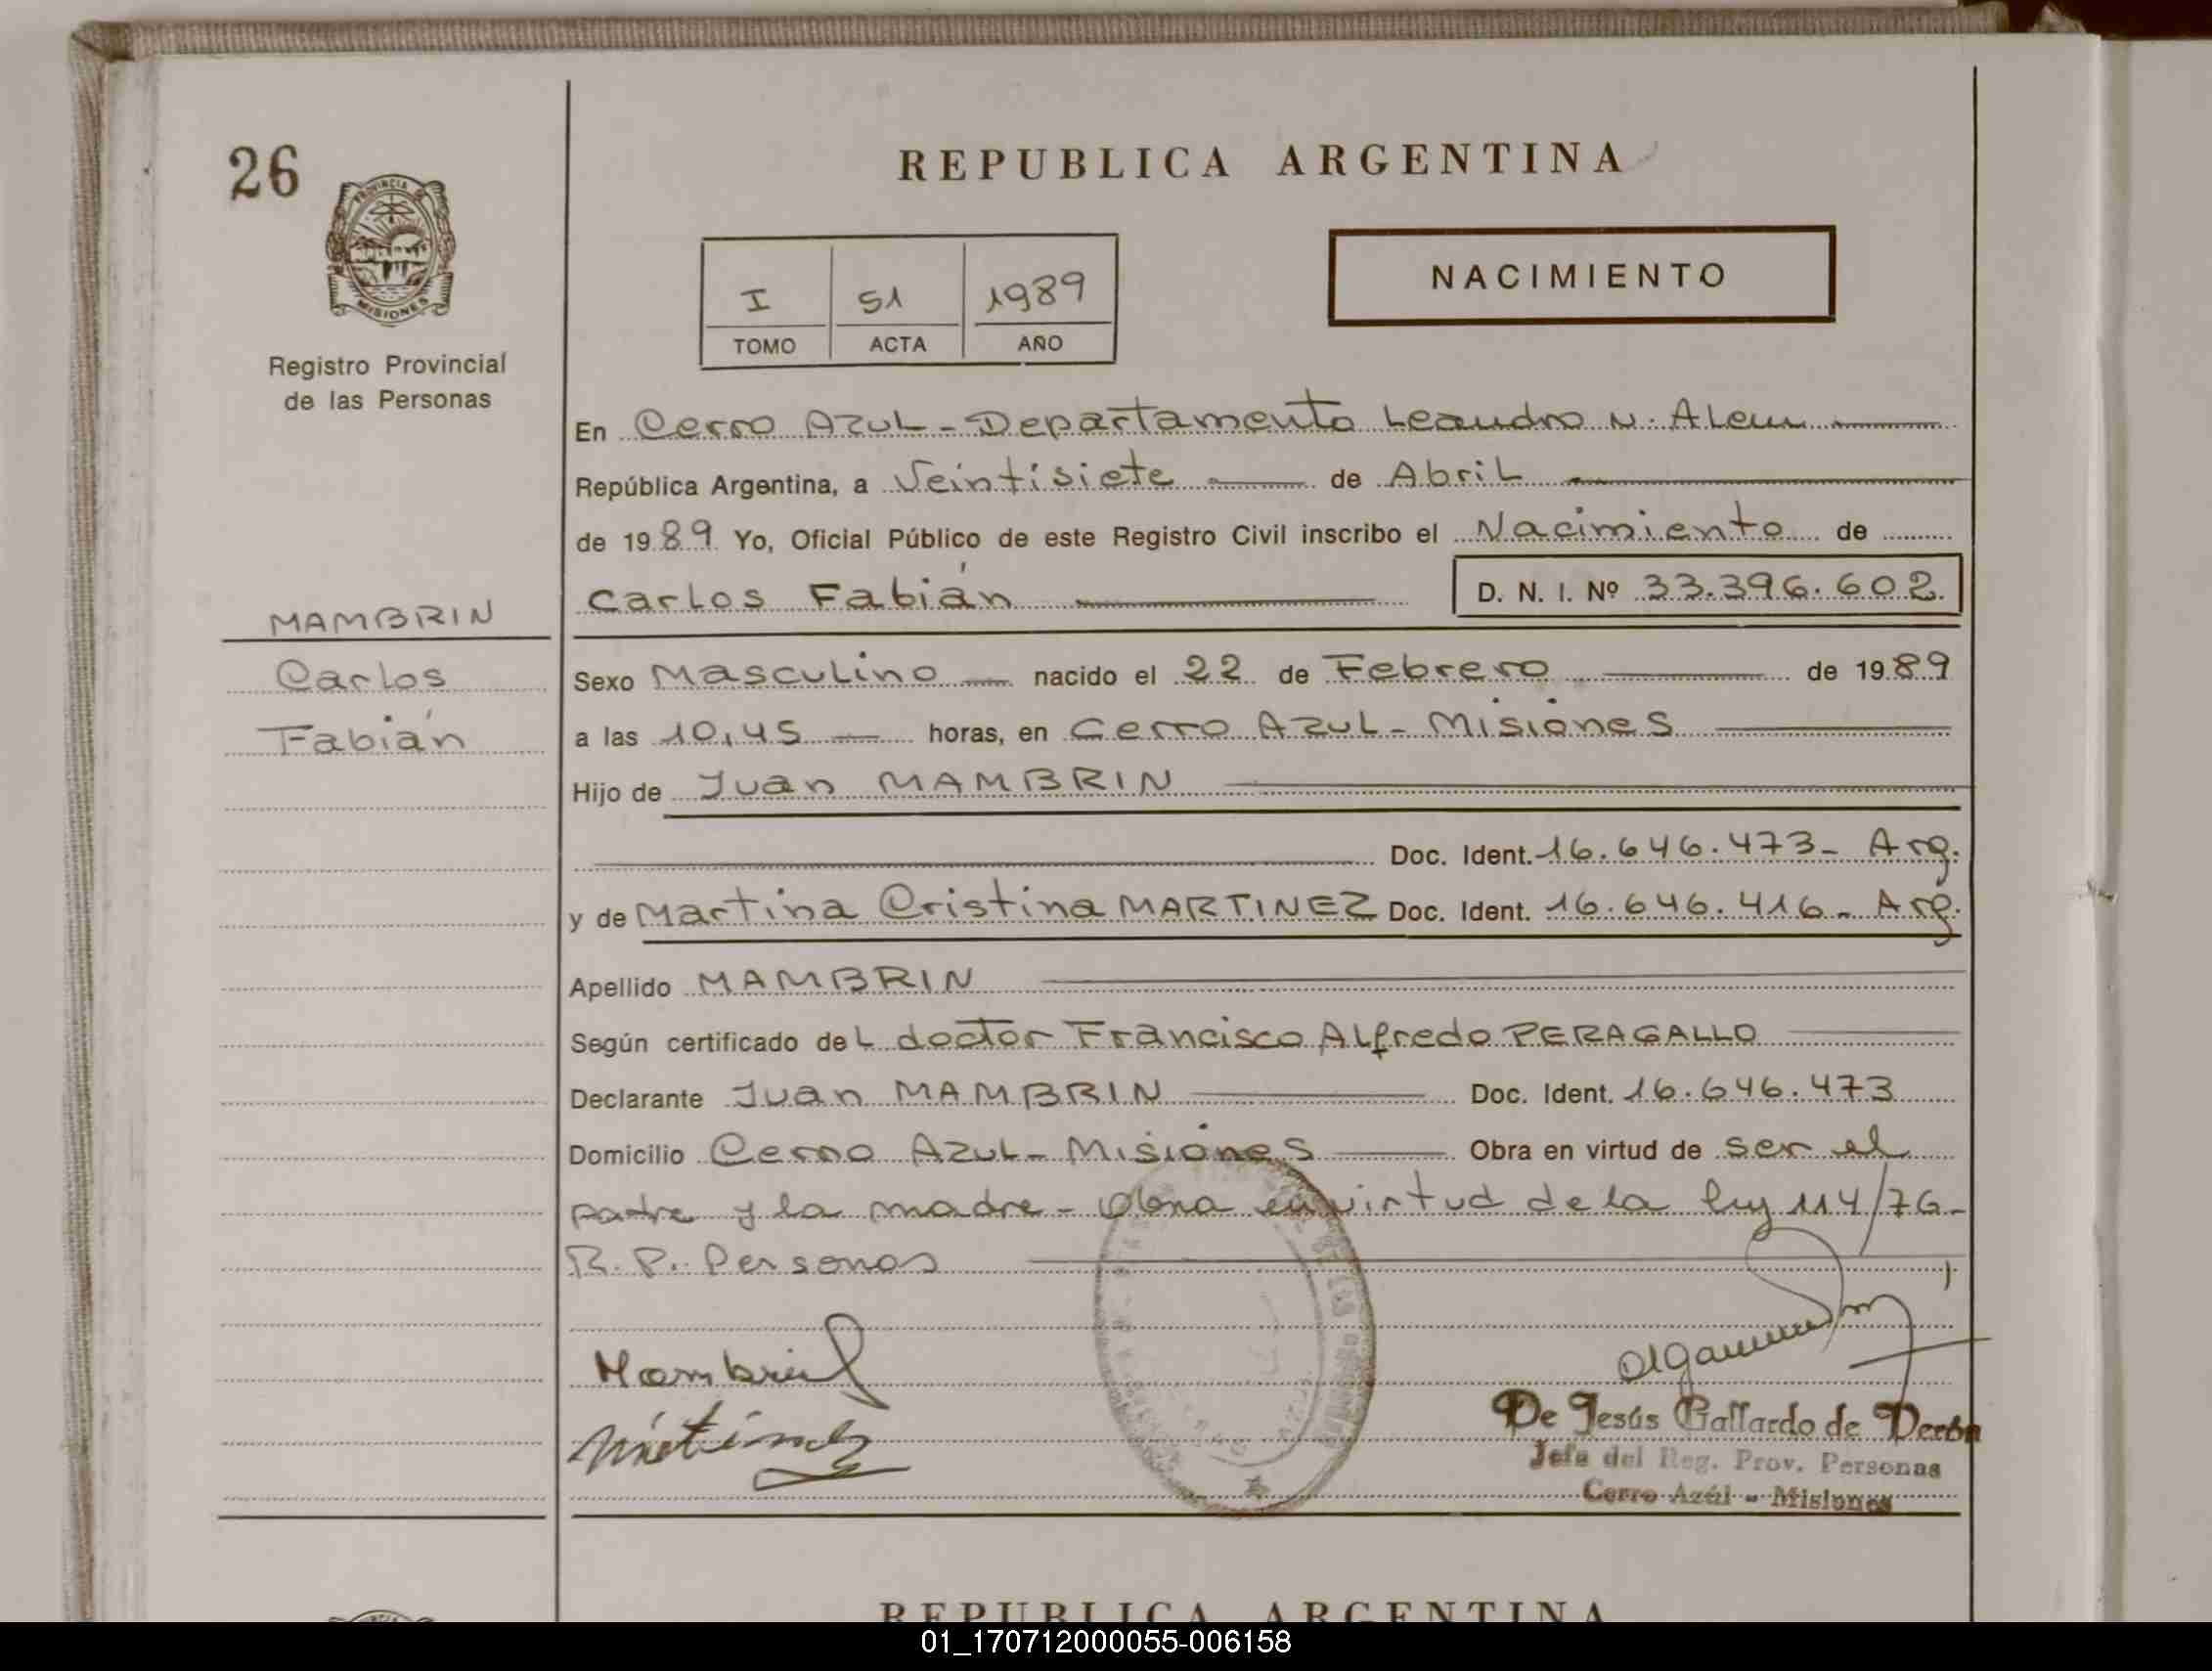 26
PROVINCIA DE
MISIONES
Registro Provincial
de las Personas
MAMBRIN
Carlos
Fabián
REPUBLICA ARGENTINA
I 51 1989
TOMO ACTA AÑO
NACIMIENTO
En Cerro Azul - Departamento Leandro N. Alem
República Argentina, a Veintisiete de Abril
de 1989 Yo, Oficial Público de este Registro Civil inscribo el Nacimiento de
Carlos Fabián D. N. I. Nº 33.396.602
Sexo Masculino nacido el 22 de Febrero de 1989
a las 10,45 horas, en Cerro Azul - Misiones
Hijo de Juan MAMBRIN
Doc. Ident. 16.646.473 - Arg.
y de Martina Cristina MARTINEZ Doc. Ident. 16.646.416 - Arg.
Apellido MAMBRIN
Según certificado del doctor Francisco Alfredo PERAGALLO
Declarante Juan MAMBRIN Doc. Ident. 16.646.473
Domicilio Cerro Azul - Misiones Obra en virtud de ser el
padre y la madre - Obra en virtud de la ley 114/76 -
R. P. Personas
Mambrin
De Jesús Gallardo de Derón
Jefe del Reg. Prov. Personas
Cerro Azúl - Misiones
REPUBLICA ARGENTINA
01_170712000055-006158